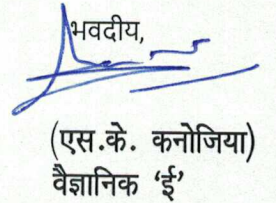 भवदीय,
(एस.के. कनोजिया)
वैज्ञानिक ‘ई’